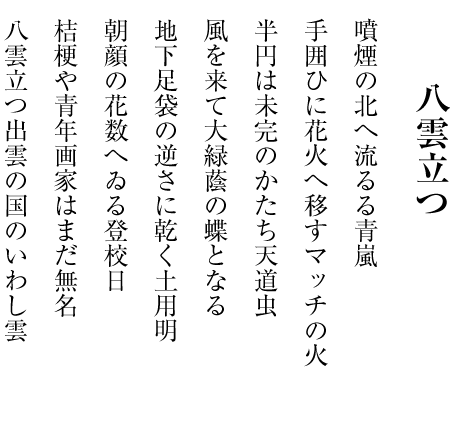 八雲立つ
噴煙の北へ流るる青嵐
手囲ひに花火へ移すマッチの火
半円は未完のかたち天道虫
風を来て大緑蔭の蝶となる
地下足袋の逆さに乾く土用明
朝顔の花数へゐる登校日
桔梗や青年画家はまだ無名
八雲立つ出雲の国のいわし雲